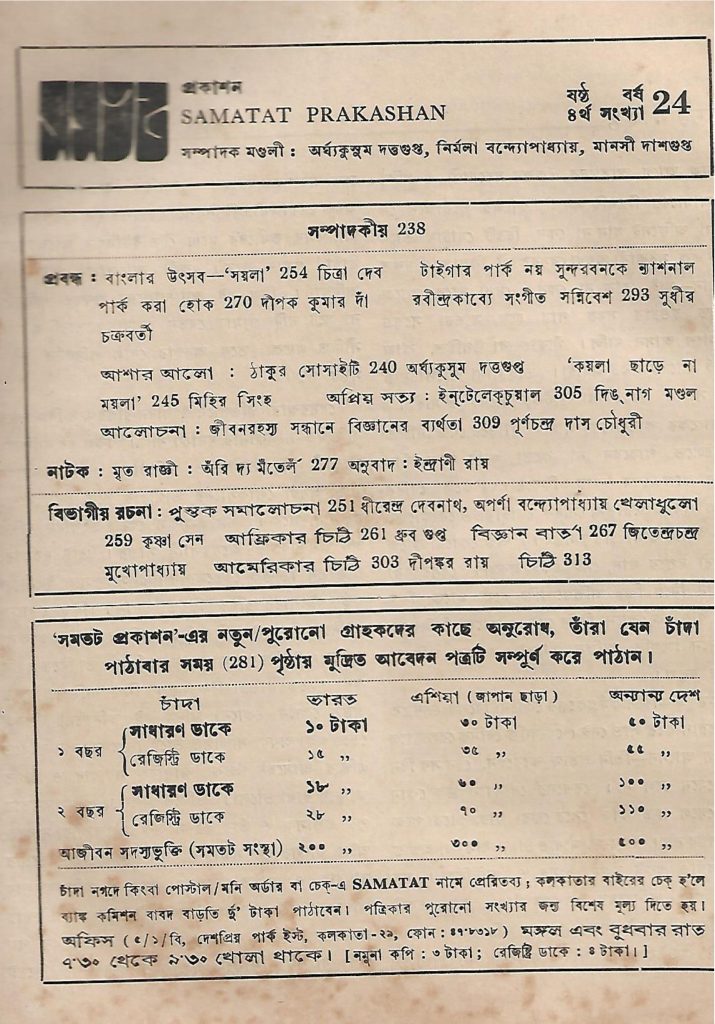 সমতট
প্রকাশন
SAMATAT PRAKASHAN
ষষ্ঠ বর্ষ
৪র্থ সংখ্যা 24
সম্পাদক মণ্ডলী : অর্ঘ্যকুসুম দত্তগুপ্ত, নির্মলা বন্দ্যোপাধ্যায়, মানসী দাশগুপ্ত
সম্পাদকীয় 238
প্রবন্ধ : বাংলার উৎসব—‘সয়লা’ 254 চিত্রা দেব টাইগার পার্ক নয় সুন্দরবনকে ন্যাশনাল
পার্ক করা হোক 270 দীপক কুমার দাঁ রবীন্দ্রকাব্যে সংগীত সন্নিবেশ 293 সুধীর
চক্রবর্তী
আশার আলো : ঠাকুর সোসাইটি 240 অর্ঘ্যকুসুম দত্তগুপ্ত ‘কয়লা ছাড়ে না
ময়লা’ 245 মিহির সিংহ অপ্রিয় সত্য : ইন্‌টেলেক্‌চুয়াল 305 দিঙ্‌নাগ মণ্ডল
আলোচনা : জীবনরহস্য সন্ধানে বিজ্ঞানের ব্যর্থতা 309 পূর্ণচন্দ্র দাস চৌধুরী
নাটক : মৃত রাজ্ঞী : অঁরি দ্য মঁতের্ল 277 অনুবাদ : ইন্দ্রাণী রায়
বিভাগীয় রচনা : পুস্তক সমালোচনা 251 ধীরেন্দ্র দেবনাথ, অপর্ণা বন্দ্যোপাধ্যায় খেলাধুলো
259 কৃষ্ণা সেন আফ্রিকার চিঠি 261 ধ্রুব গুপ্ত বিজ্ঞান বার্তা 267 জিতেন্দ্রচন্দ্র
মুখোপাধ্যায় আমেরিকার চিঠি 303 দীপঙ্কর রায় চিঠি 313
‘সমতট প্রকাশন’-এর নতুন/পুরোনো গ্রাহকদের কাছে অনুরোধ, তাঁরা যেন চাঁদা
পাঠাবার সময় (281) পৃষ্ঠায় মুদ্রিত আবেদন পত্রটি সম্পূর্ণ করে পাঠান।
চাঁদা ভারত এশিয়া (জাপান ছাড়া) অন্যান্য দেশ
সাধারণ ডাকে ১০ টাকা ৩০ টাকা ৫০ টাকা
১ বছর
রেজিস্ট্রি ডাকে ১৫ ,, ৩৫ ,, ৫৫ ,,
সাধারণ ডাকে ১৮ ,, ৬০ ,, ১০০ ,,
২ বছর
রেজিস্ট্রি ডাকে ২৮ ,, ৭০ ,, ১১০ ,,
আজীবন সদস্যভুক্তি (সমতট সংস্থা) ২০০ ,, ৩০০ ,, ৫০০ ,,
চাঁদা নগদে কিংবা পোস্টাল/মনি অর্ডার বা চেক্-এ SAMATAT নামে প্রেরিতব্য ; কলকাতার বাইরের চেক্ হ’লে
ব্যাঙ্ক কমিশন বাবদ বাড়তি দু’ টাকা পাঠাবেন। পত্রিকার পুরোনো সংখ্যার জন্য বিশেষ মূল্য দিতে হয়।
অফিস (৫/১/বি, দেশপ্রিয় পার্ক ইস্ট, কলকাতা-২৯, ফোন : ৪৭-৮৩১৮) মঙ্গল এবং বুধবার রাত
৭·৩০ থেকে ৯·৩০ খোলা থাকে। [নমুনা কপি : ৩ টাকা ; রেজিষ্ট্রি ডাকে : ৪ টাকা।]